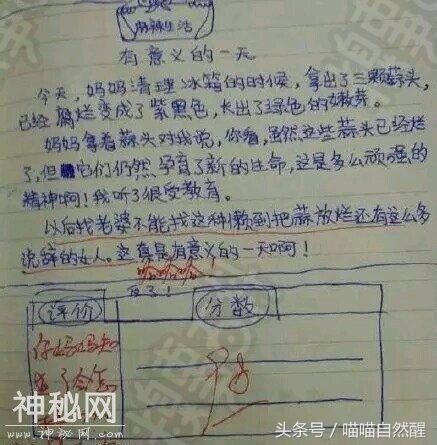 麻辣生活
有意义的一天
今天，妈妈清理冰箱的时候，拿出了三颗蒜头，
已经腐烂变成了紫黑色，长出了绿色的嫩芽。
妈妈拿着蒜头对我说，你看，虽然这些蒜头已经烂
了，但它们仍然孕育了新的生命，这是多么顽强的
精神啊！我听了很受教育。
以后找老婆不能找这种懒到把蒜放烂还有这么多
说辞的女人。这真是有意义的一天啊！
哈哈哈
评价
分数
你妈妈知
神秘网
www.shenmiw.com
头条号 / 喵喵自然醒